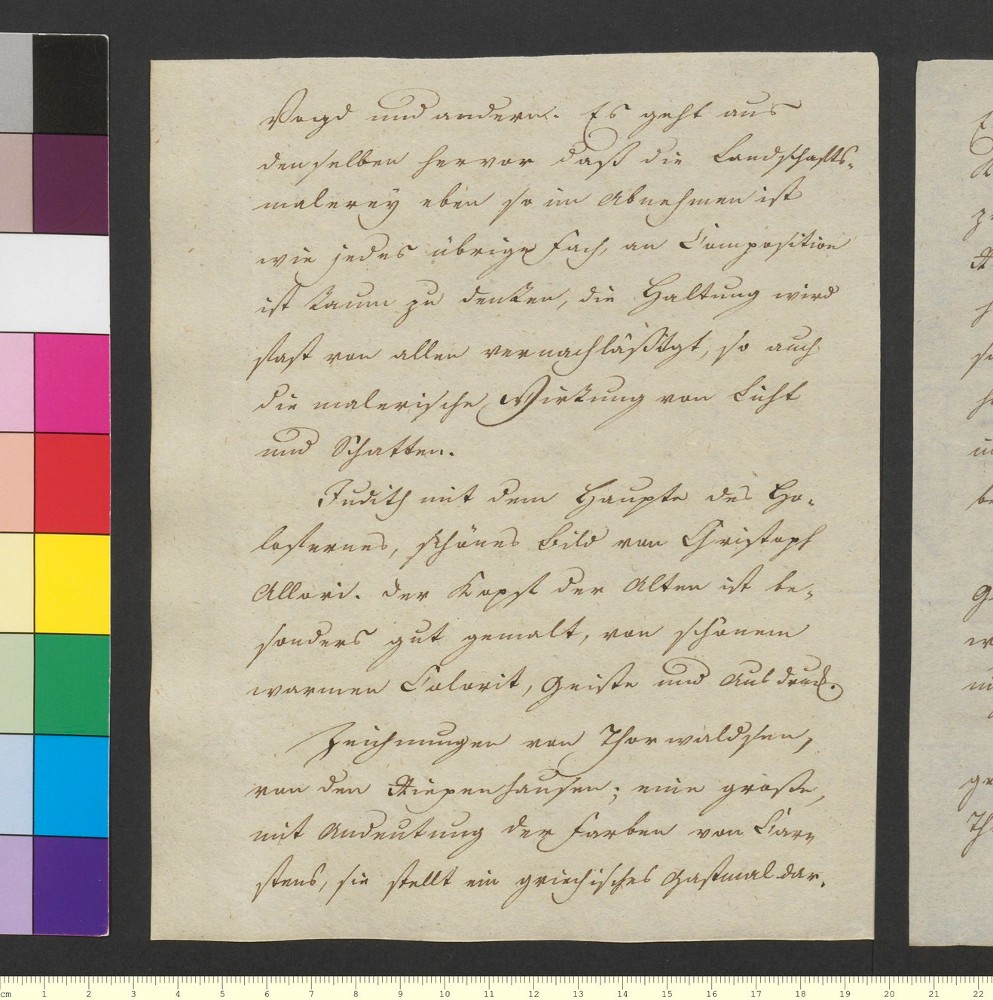 Vogd und andern. Es geht aus
denselben hervor daß die Landschafts-
malerey eben so im Abnehmen ist
wie jedes übrige Fach, an Composition
ist kaum zu denken, die Haltung wird
fast von allen vernachläßigt, so auch
die malerische Wirkung von Licht
und Schatten.
Judith mit dem Haupte des Ho-
lofernes, schönes Bild von Christoph
Allori. Der Kopf der Alten ist be-
sonders gut gemalt, von schönem
warmen Colorit, Geiste und Ausdruck.
Zeichnungen von Thorwaldsen,
von den Riepenhausen; eine große,
mit Andeutung der Farben von Car-
stens, sie stellt ein griechisches Gastmal dar.
cm 1 2 3 4 5 6 7 8 9 10 11 12 13 14 15 16 17 18 19 20 21 22